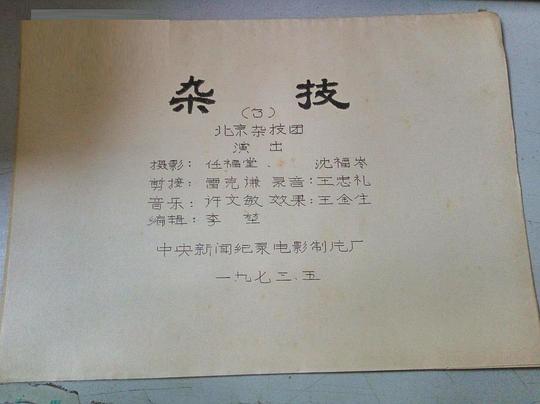 杂 技
(3)
北京杂技团
演 出
摄影: 任福堂、 沈福岑
剪接: 雷克谦 录音: 王忠礼
音乐: 许文敏 效果: 王金生
编辑: 李 堃
中央新闻纪录电影制片厂
一九七三.五